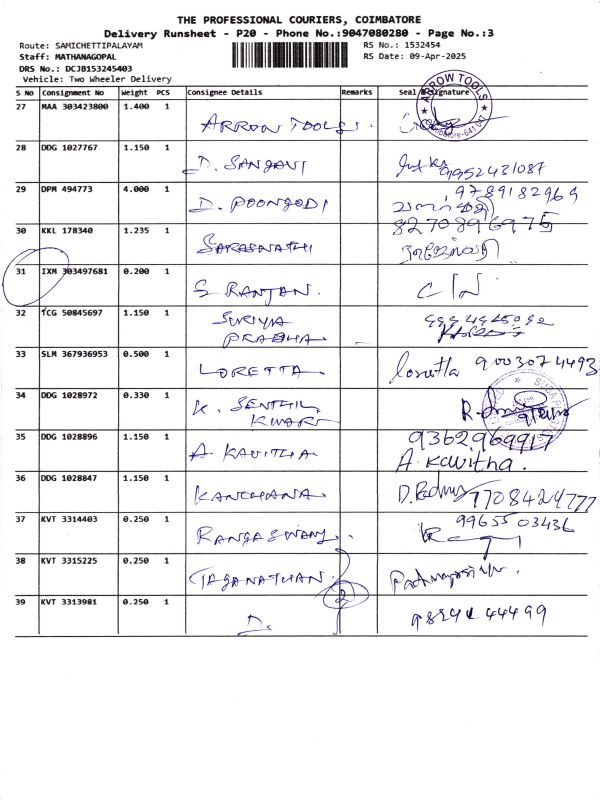 THE PROFESSIONAL COURIERS, COIMBATORE
Delivery Runsheet - P20 - Phone No.:9047080280 - Page No.:3
Route: SAMICHETTIPALAYAM
RS No.: 1532454
Staff: MATHANAGOPAL
RS Date: 09-Apr-2025
DRS No.: DCJB153245403
Vehicle: Two Wheeler Delivery
S No Consignment No Weight PCS Consignee Details Remarks Seal & Signature
27 MAA 303423800 1.400 1 ARROW TOOLS. ARROW TOOLS
28 DDG 1027767 1.150 1 D. SANJAVI 9952421087
29 DPM 494773 4.000 1 D. POONGODI 9789182969
30 KKL 178340 1.235 1 SARASWATHI 8270896975
31 IXM 303497681 0.200 1 S RANJAN. C/N
32 TCG 50845697 1.150 1 SURIYA
PRABHA
33 SLM 367936953 0.500 1 LORETTA. loretta 9003074493
34 DDG 1028972 0.330 1 K. SENTHIL
KUMAR
35 DDG 1028896 1.150 1 A. KAVITHA 9362969917
A. Kavitha.
36 DDG 1028847 1.150 1 KANCHANA 7708424777
37 KVT 3314403 0.250 1 RANGASWAMY. 9965503436
38 KVT 3315225 0.250 1 JAGANATHAN
39 KVT 3313981 0.250 1 D.